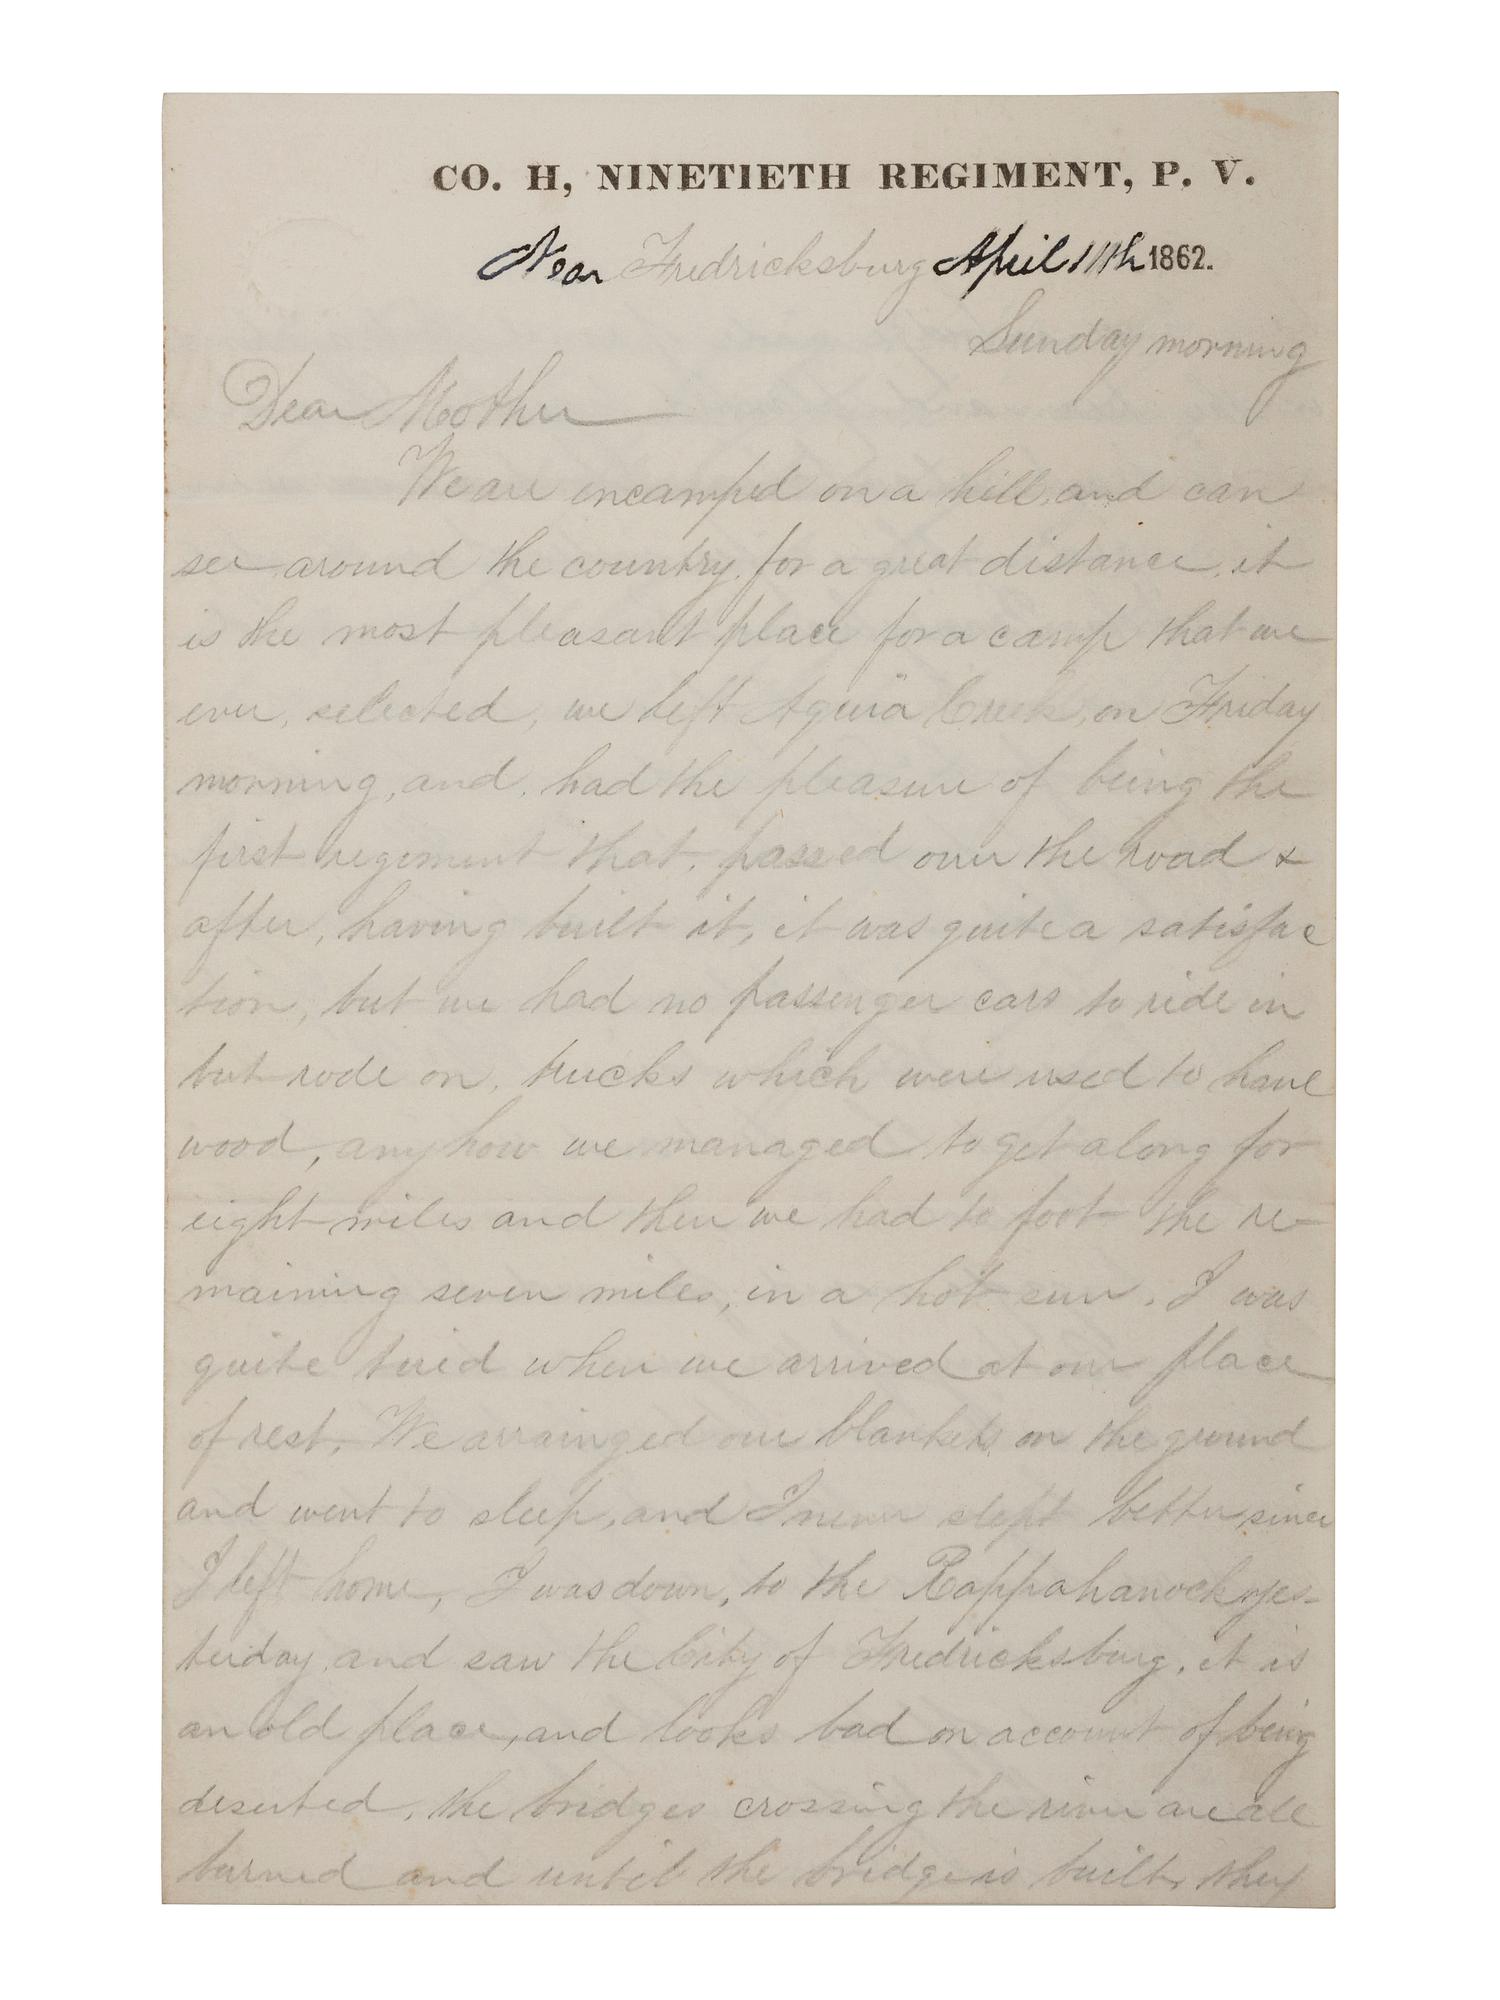 CO. H, NINETIETH REGIMENT, P. V.
Near Fredricksburg April 11th 1862.
Sunday morning
Dear Mother
We are encamped on a hill, and can
see around the country, for a great distance, it
is the most pleasant place for a camp that we
ever, selected, we left Aquia Creek, on Friday
morning, and, had the pleasure of being the
first regiment that, passed over the road &
after, having built it, it was quite a satisfac
tion, but we had no passenger cars to ride in
but rode on, trucks which were used to haul
wood, anyhow we managed to get along for
eight miles and then we had to foot the re-
maining seven miles, in a hot sun. I was
quite tired when we arrived at our place
of rest, We arrainged our blankets on the ground
and went to sleep, and I never slept better since
I left home, I was down, to the Rappahanock yes-
terday, and saw the City of Fredricksburg, it is
an old place, and looks bad on account of being
deserted, the bridges crossing the river are all
burned and until the bridge is built, they